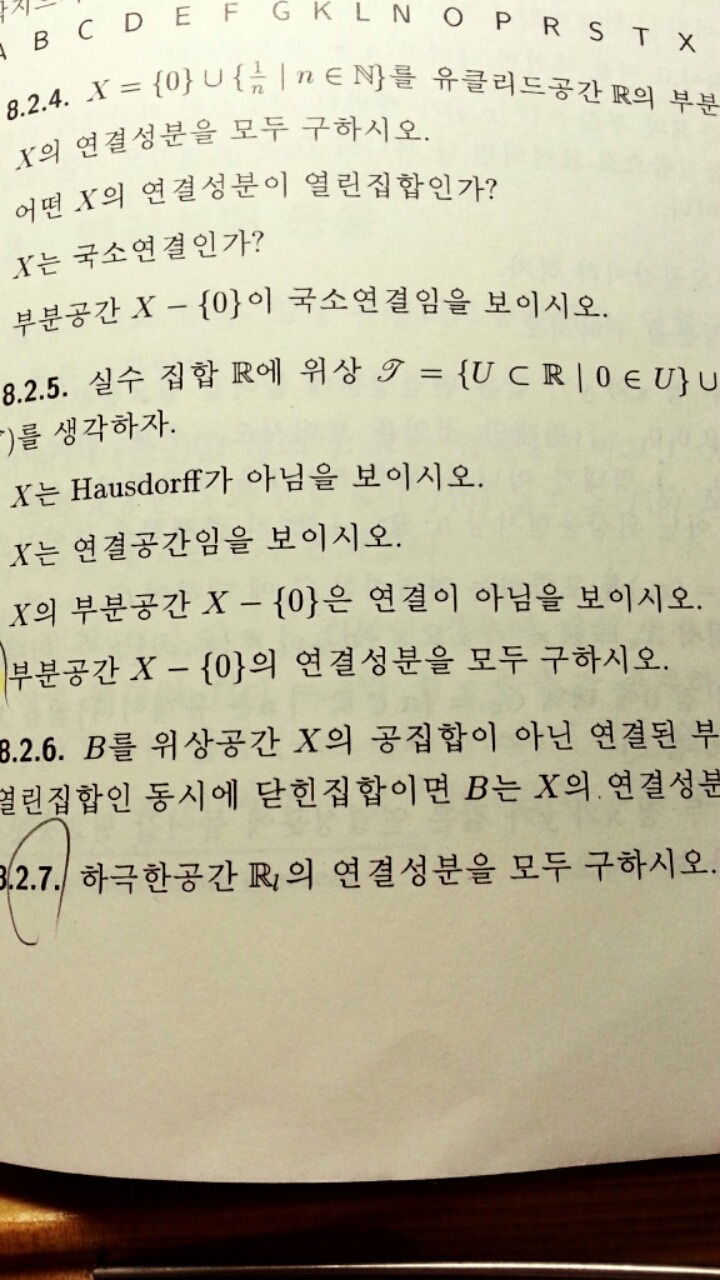 A B C D E F G K L N O P R S T X
8.2.4. X = {0} ∪ {1/n | n ∈ ℕ}를 유클리드공간 ℝ의 부분
X의 연결성분을 모두 구하시오.
어떤 X의 연결성분이 열린집합인가?
X는 국소연결인가?
부분공간 X − {0}이 국소연결임을 보이시오.
8.2.5. 실수 집합 ℝ에 위상 𝒯 = {U ⊂ ℝ | 0 ∈ U} ∪
)를 생각하자.
X는 Hausdorff가 아님을 보이시오.
X는 연결공간임을 보이시오.
X의 부분공간 X − {0}은 연결이 아님을 보이시오.
부분공간 X − {0}의 연결성분을 모두 구하시오.
8.2.6. B를 위상공간 X의 공집합이 아닌 연결된 부
열린집합인 동시에 닫힌집합이면 B는 X의 연결성분
8.2.7. 하극한공간 ℝₗ의 연결성분을 모두 구하시오.